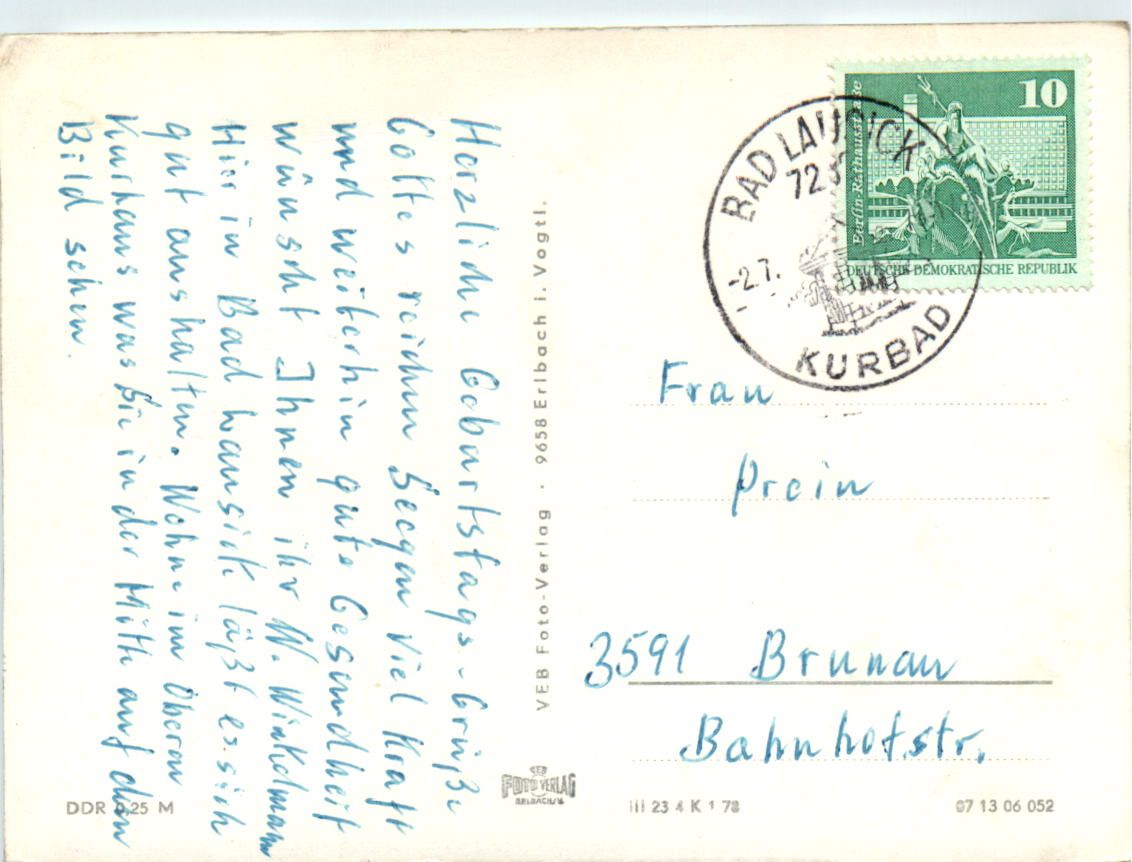 Herzliche Geburtstags-Grüße
Gottes reichen Seegen Viel Kraft
und weiterhin gute Gesundheit
wünscht Ihnen ihr W. Winkelmann
Hier in Bad Lausick läßt es sich
gut aushalten. Wohne im Oberen
Kurhaus was Sie in der Mitte auf dem
Bild sehen.
VEB Foto-Verlag · 9658 Erlbach i. Vogtl.
10
Berlin-Rathausstraße
DEUTSCHE DEMOKRATISCHE REPUBLIK
BAD LAUSICK
-2.7.
KURBAD
Frau
Prein
3591 Brunau
Bahnhofstr.
DDR 0,25 M
VEB
FOTO VERLAG
ERLBACH/V.
III 23 4 K 1 78
07 13 06 052